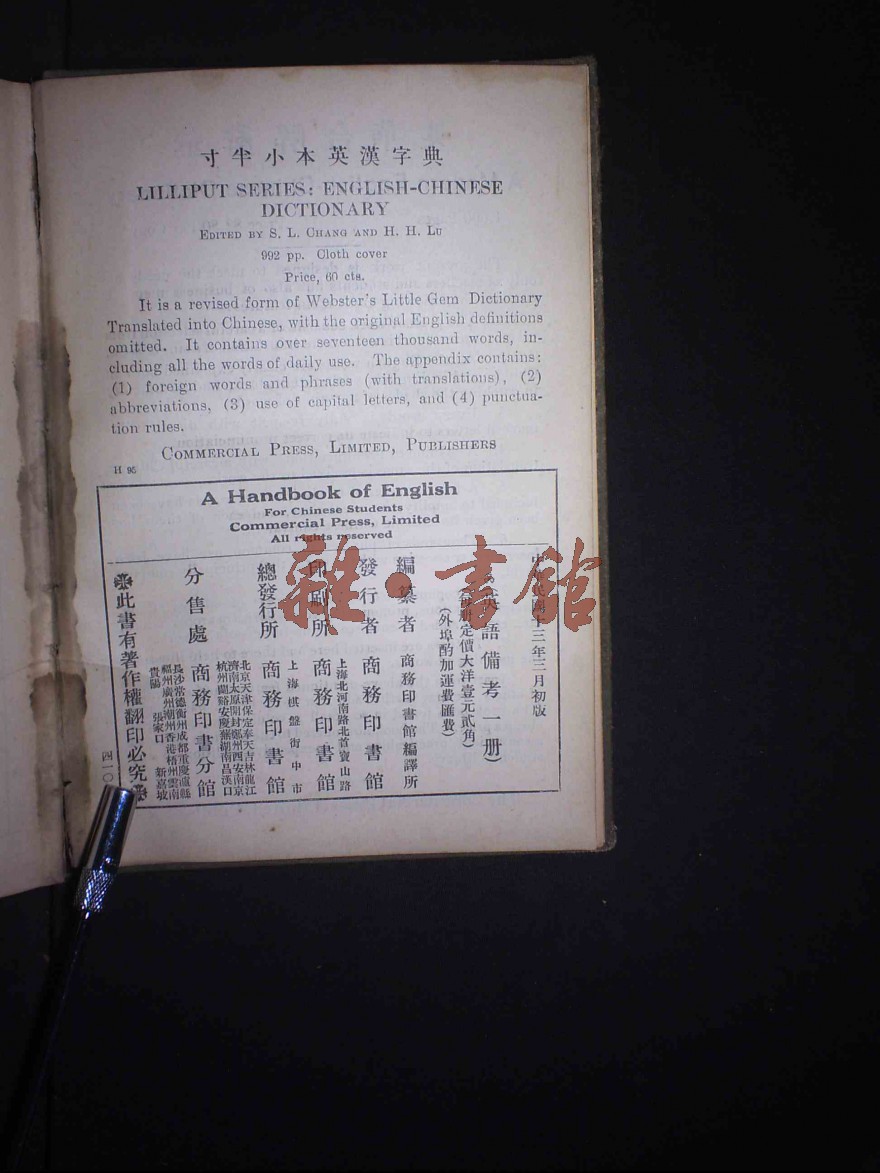 寸半小本英漢字典
LILLIPUT SERIES: ENGLISH-CHINESE
DICTIONARY
EDITED BY S. L. CHANG AND H. H. LU
992 pp. Cloth cover
Price, 60 cts.
It is a revised form of Webster's Little Gem Dictionary
Translated into Chinese, with the original English definitions
omitted. It contains over seventeen thousand words, in-
cluding all the words of daily use. The appendix contains:
(1) foreign words and phrases (with translations), (2)
abbreviations, (3) use of capital letters, and (4) punctua-
tion rules.
COMMERCIAL PRESS, LIMITED, PUBLISHERS
H 95
A Handbook of English
For Chinese Students
Commercial Press, Limited
All rights reserved
中華民國十三年三月初版
英語備考一册)
(每册定價大洋壹元貳角)
(外埠酌加運費匯費)
編纂者 商務印書館編譯所
發行者 商務印書館
印刷所 上海北河南路北首寶山路 商務印書館
總發行所 上海棋盤街中市 商務印書館
分售處 商務印書分館
北京天津保定奉天吉林龍江
濟南太原開封鄭州西安南京
杭州蘭谿安慶蕪湖南昌漢口
長沙常德衡州成都重慶瀘縣
福州廣州潮州香港梧州雲南
貴陽 張家口 新嘉坡
此書有著作權翻印必究
四一〇
雜·書館